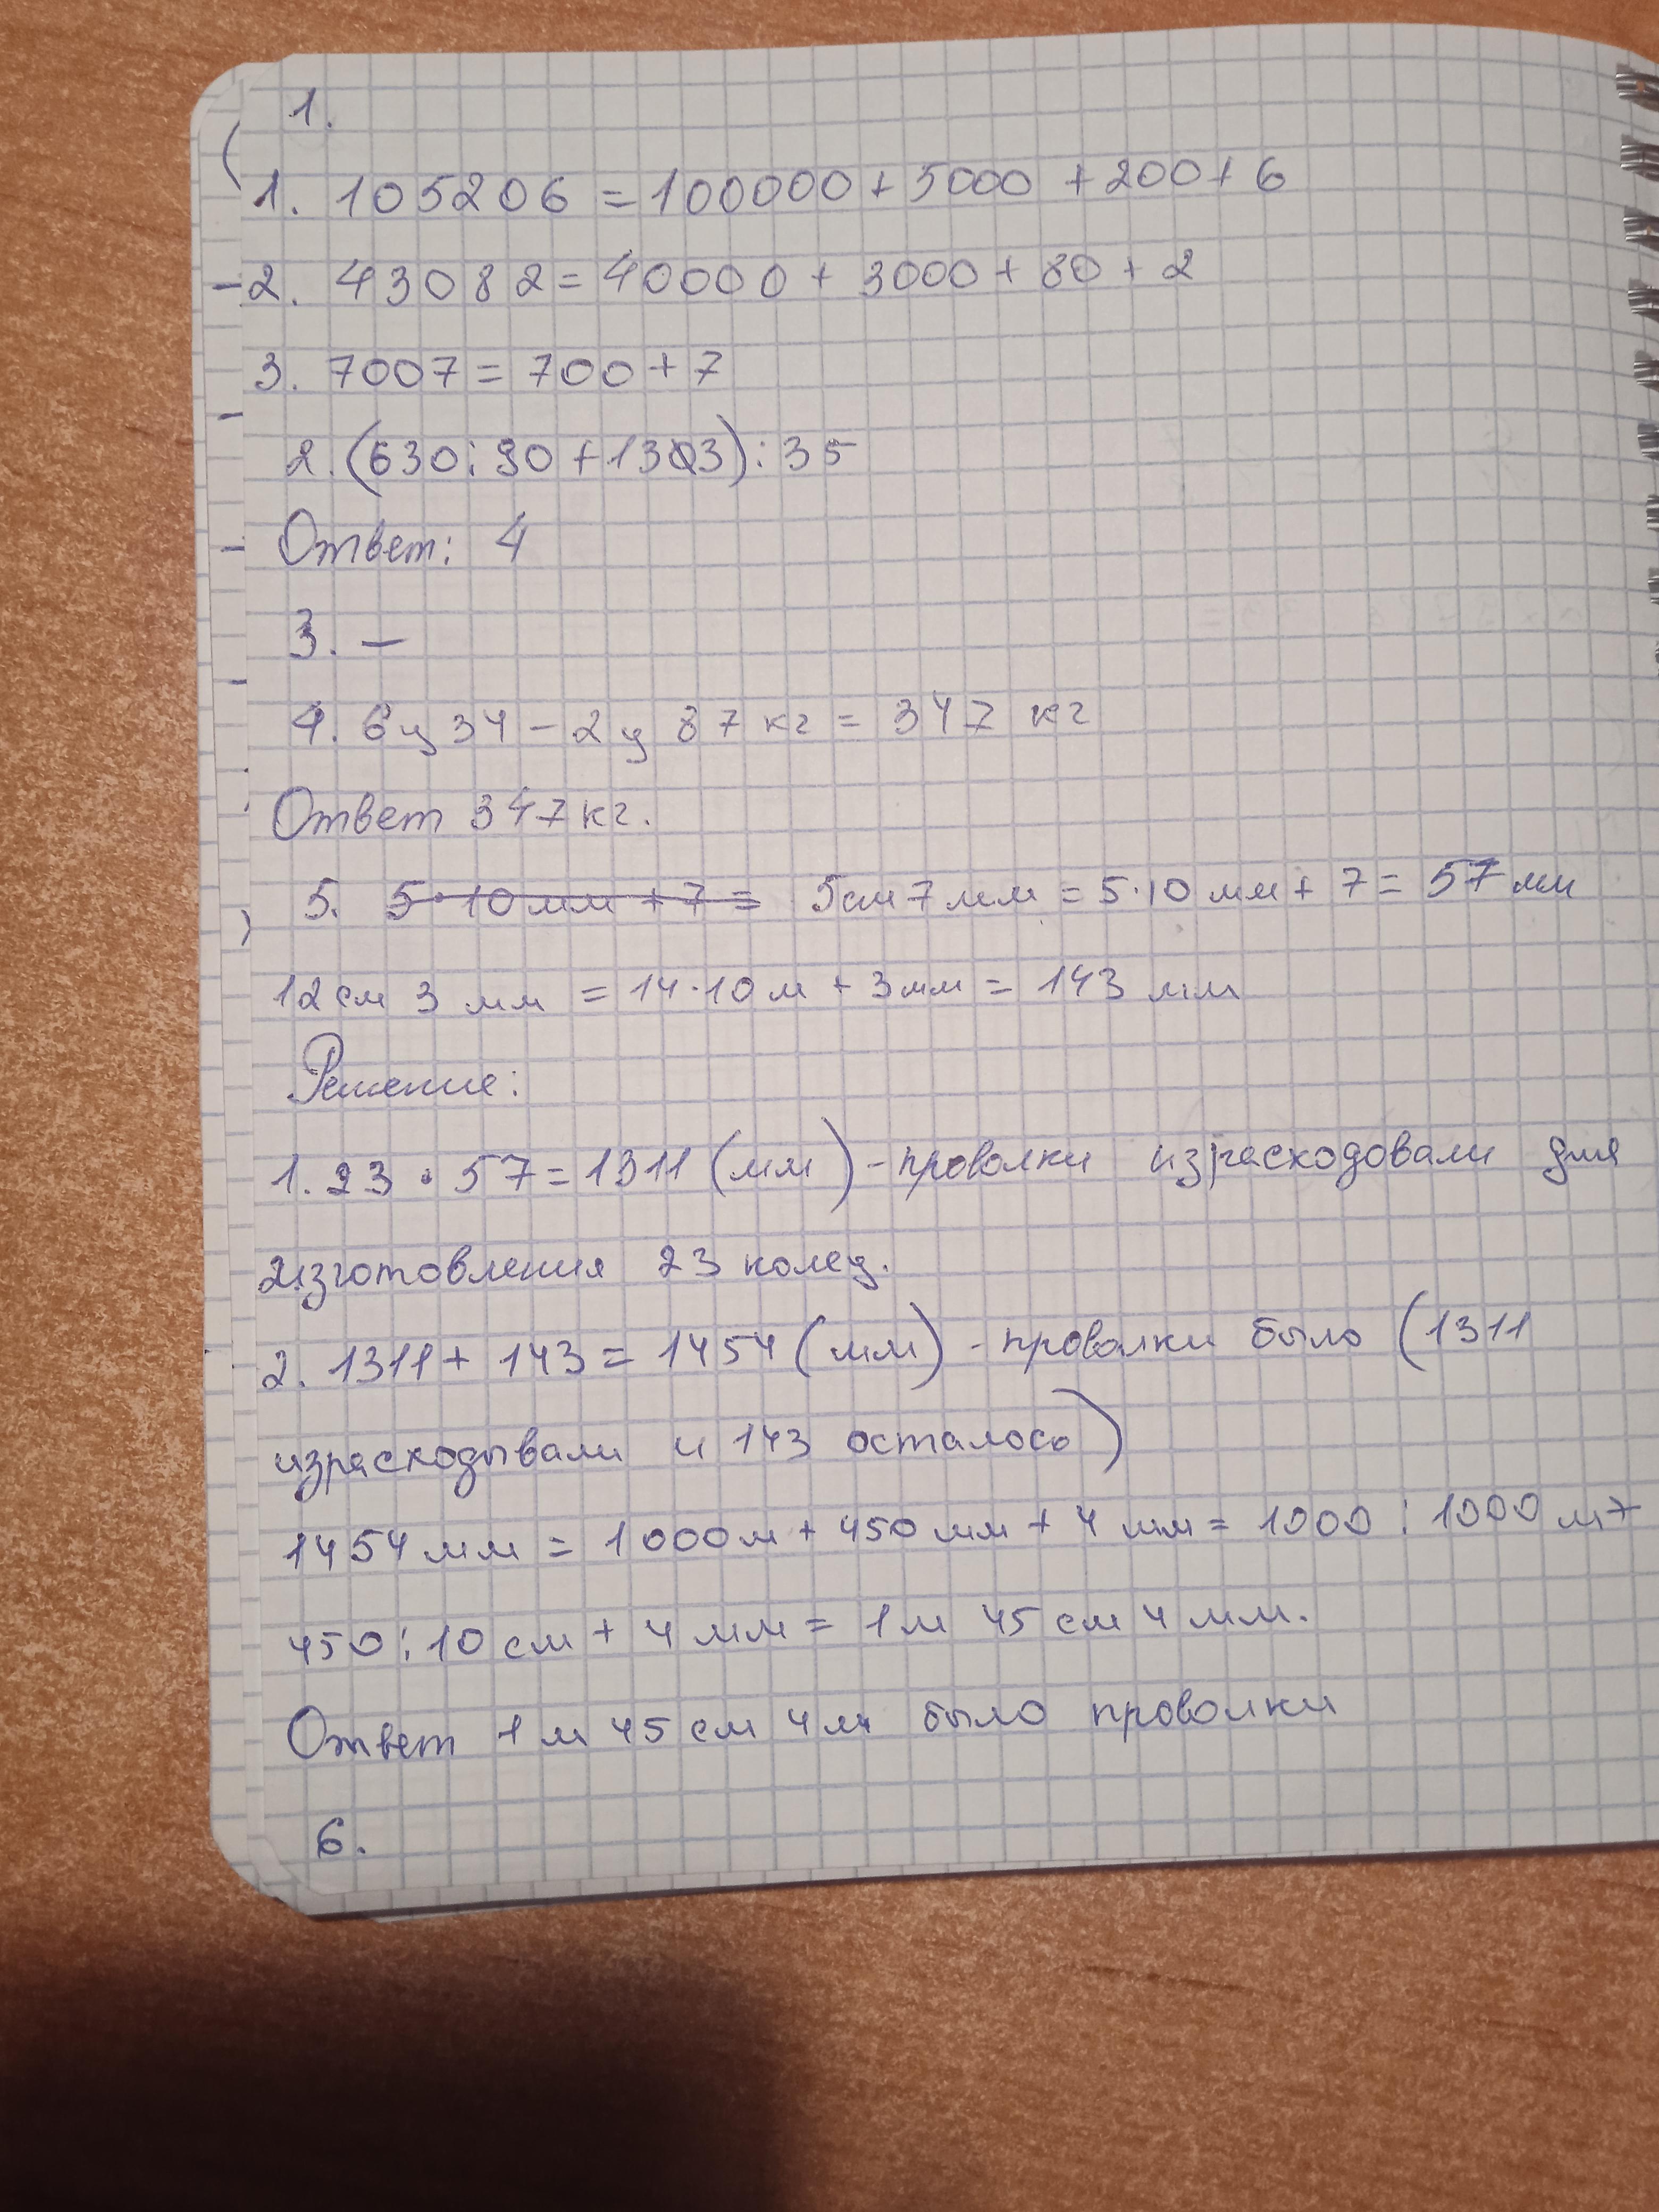 1.
1. 105206 = 100000 + 5000 + 200 + 6
2. 43082 = 40000 + 3000 + 80 + 2
3. 7007 = 700 + 7
2. (630 : 90 + 133) : 35
Ответ: 4
3. —
4. 6 ц 34 - 2 ц 87 кг = 347 кг
Ответ 347 кг.
5. 5 · 10 мм + 7 = 5 см 7 мм = 5 · 10 мм + 7 = 57 мм
12 см 3 мм = 14 · 10 м + 3 мм = 143 мм
Решение:
1. 23 · 57 = 1311 (мм) - проволки израсходовали для
изготовления 23 колец.
2. 1311 + 143 = 1454 (мм) - проволки было (1311
израсходывали и 143 осталось)
1454 мм = 1000 м + 450 мм + 4 мм = 1000 : 1000 м +
450 : 10 см + 4 мм = 1 м 45 см 4 мм.
Ответ 1 м 45 см 4 мм было проволки
6.